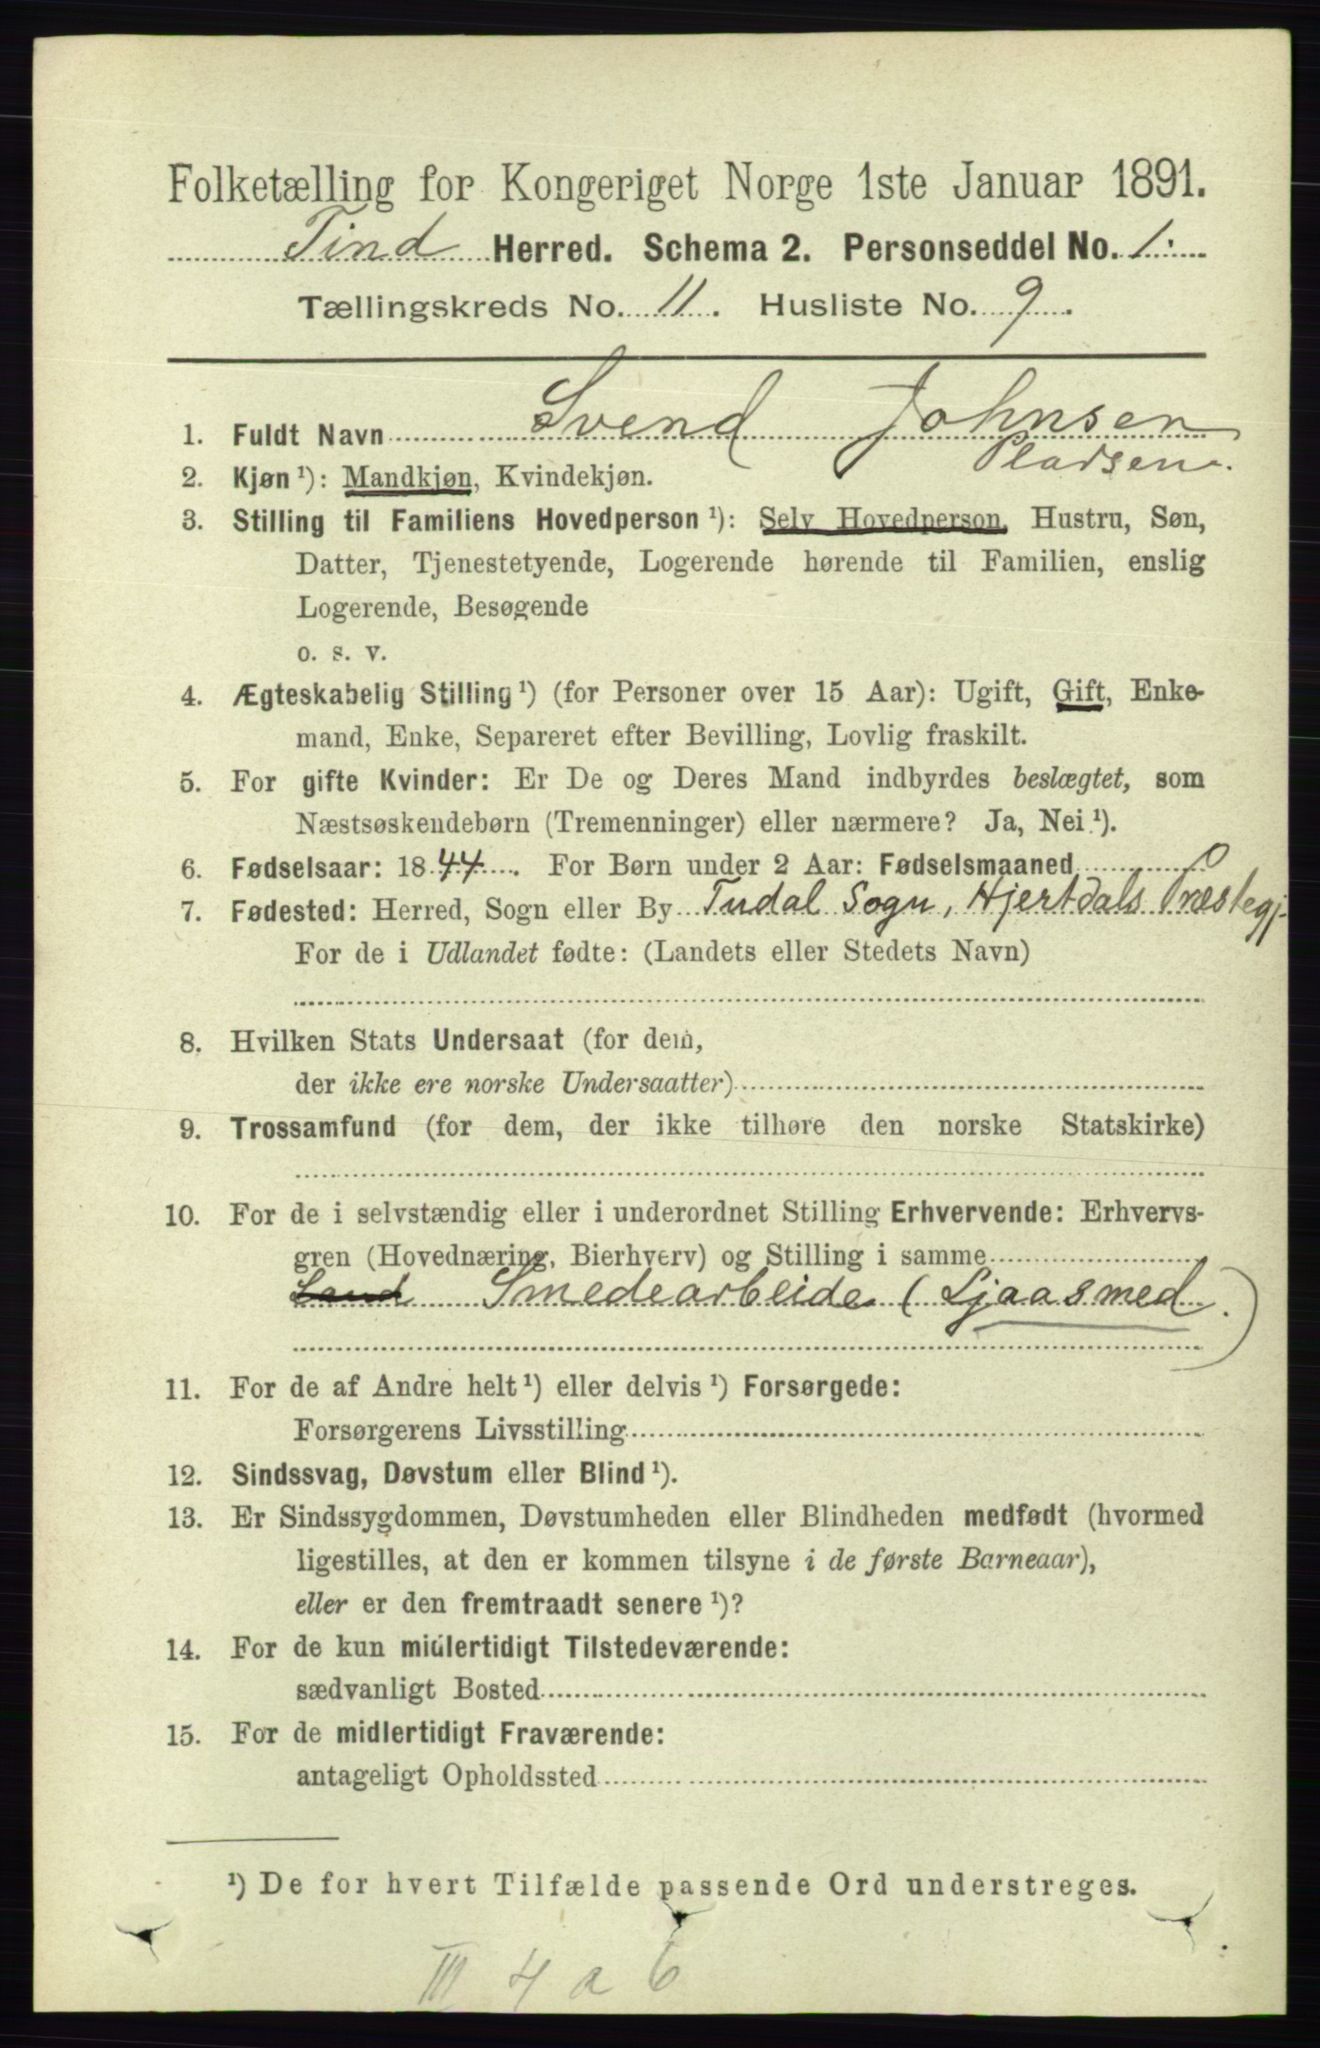 Folketælling for Kongeriget Norge 1ste Januar 1891.
Tind Herred. Schema 2. Personseddel No. 1.
Tællingskreds No. 11. Husliste No. 9.
1. Fuldt Navn Svend Johnsen
Pladsen.
2. Kjøn ¹): Mandkjøn, Kvindekjøn.
3. Stilling til Familiens Hovedperson ¹): Selv Hovedperson, Hustru, Søn,
Datter, Tjenestetyende, Logerende hørende til Familien, enslig
Logerende, Besøgende
o. s. v.
4. Ægteskabelig Stilling ¹) (for Personer over 15 Aar): Ugift, Gift, Enke-
mand, Enke, Separeret efter Bevilling, Lovlig fraskilt.
5. For gifte Kvinder: Er De og Deres Mand indbyrdes beslægtet, som
Næstsøskendebørn (Tremenninger) eller nærmere? Ja, Nei ¹).
6. Fødselsaar: 1844. For Børn under 2 Aar: Fødselsmaaned
7. Fødested: Herred, Sogn eller By Tudal Sogn, Hjertdals Præstegj
For de i Udlandet fødte: (Landets eller Stedets Navn)
8. Hvilken Stats Undersaat (for dem,
der ikke ere norske Undersaatter)
9. Trossamfund (for dem, der ikke tilhøre den norske Statskirke)
10. For de i selvstændig eller i underordnet Stilling Erhvervende: Erhvervs-
gren (Hovednæring, Bierhverv) og Stilling i samme
Smedearbeide (Ljaasmed.)
11. For de af Andre helt ¹) eller delvis ¹) Forsørgede:
Forsørgerens Livsstilling
12. Sindssvag, Døvstum eller Blind ¹).
13. Er Sindssygdommen, Døvstumheden eller Blindheden medfødt (hvormed
ligestilles, at den er kommen tilsyne i de første Barneaar),
eller er den fremtraadt senere ¹)?
14. For de kun midlertidigt Tilstedeværende:
sædvanligt Bosted
15. For de midlertidigt Fraværende:
antageligt Opholdssted
¹) De for hvert Tilfælde passende Ord understreges.
III 4 a 6